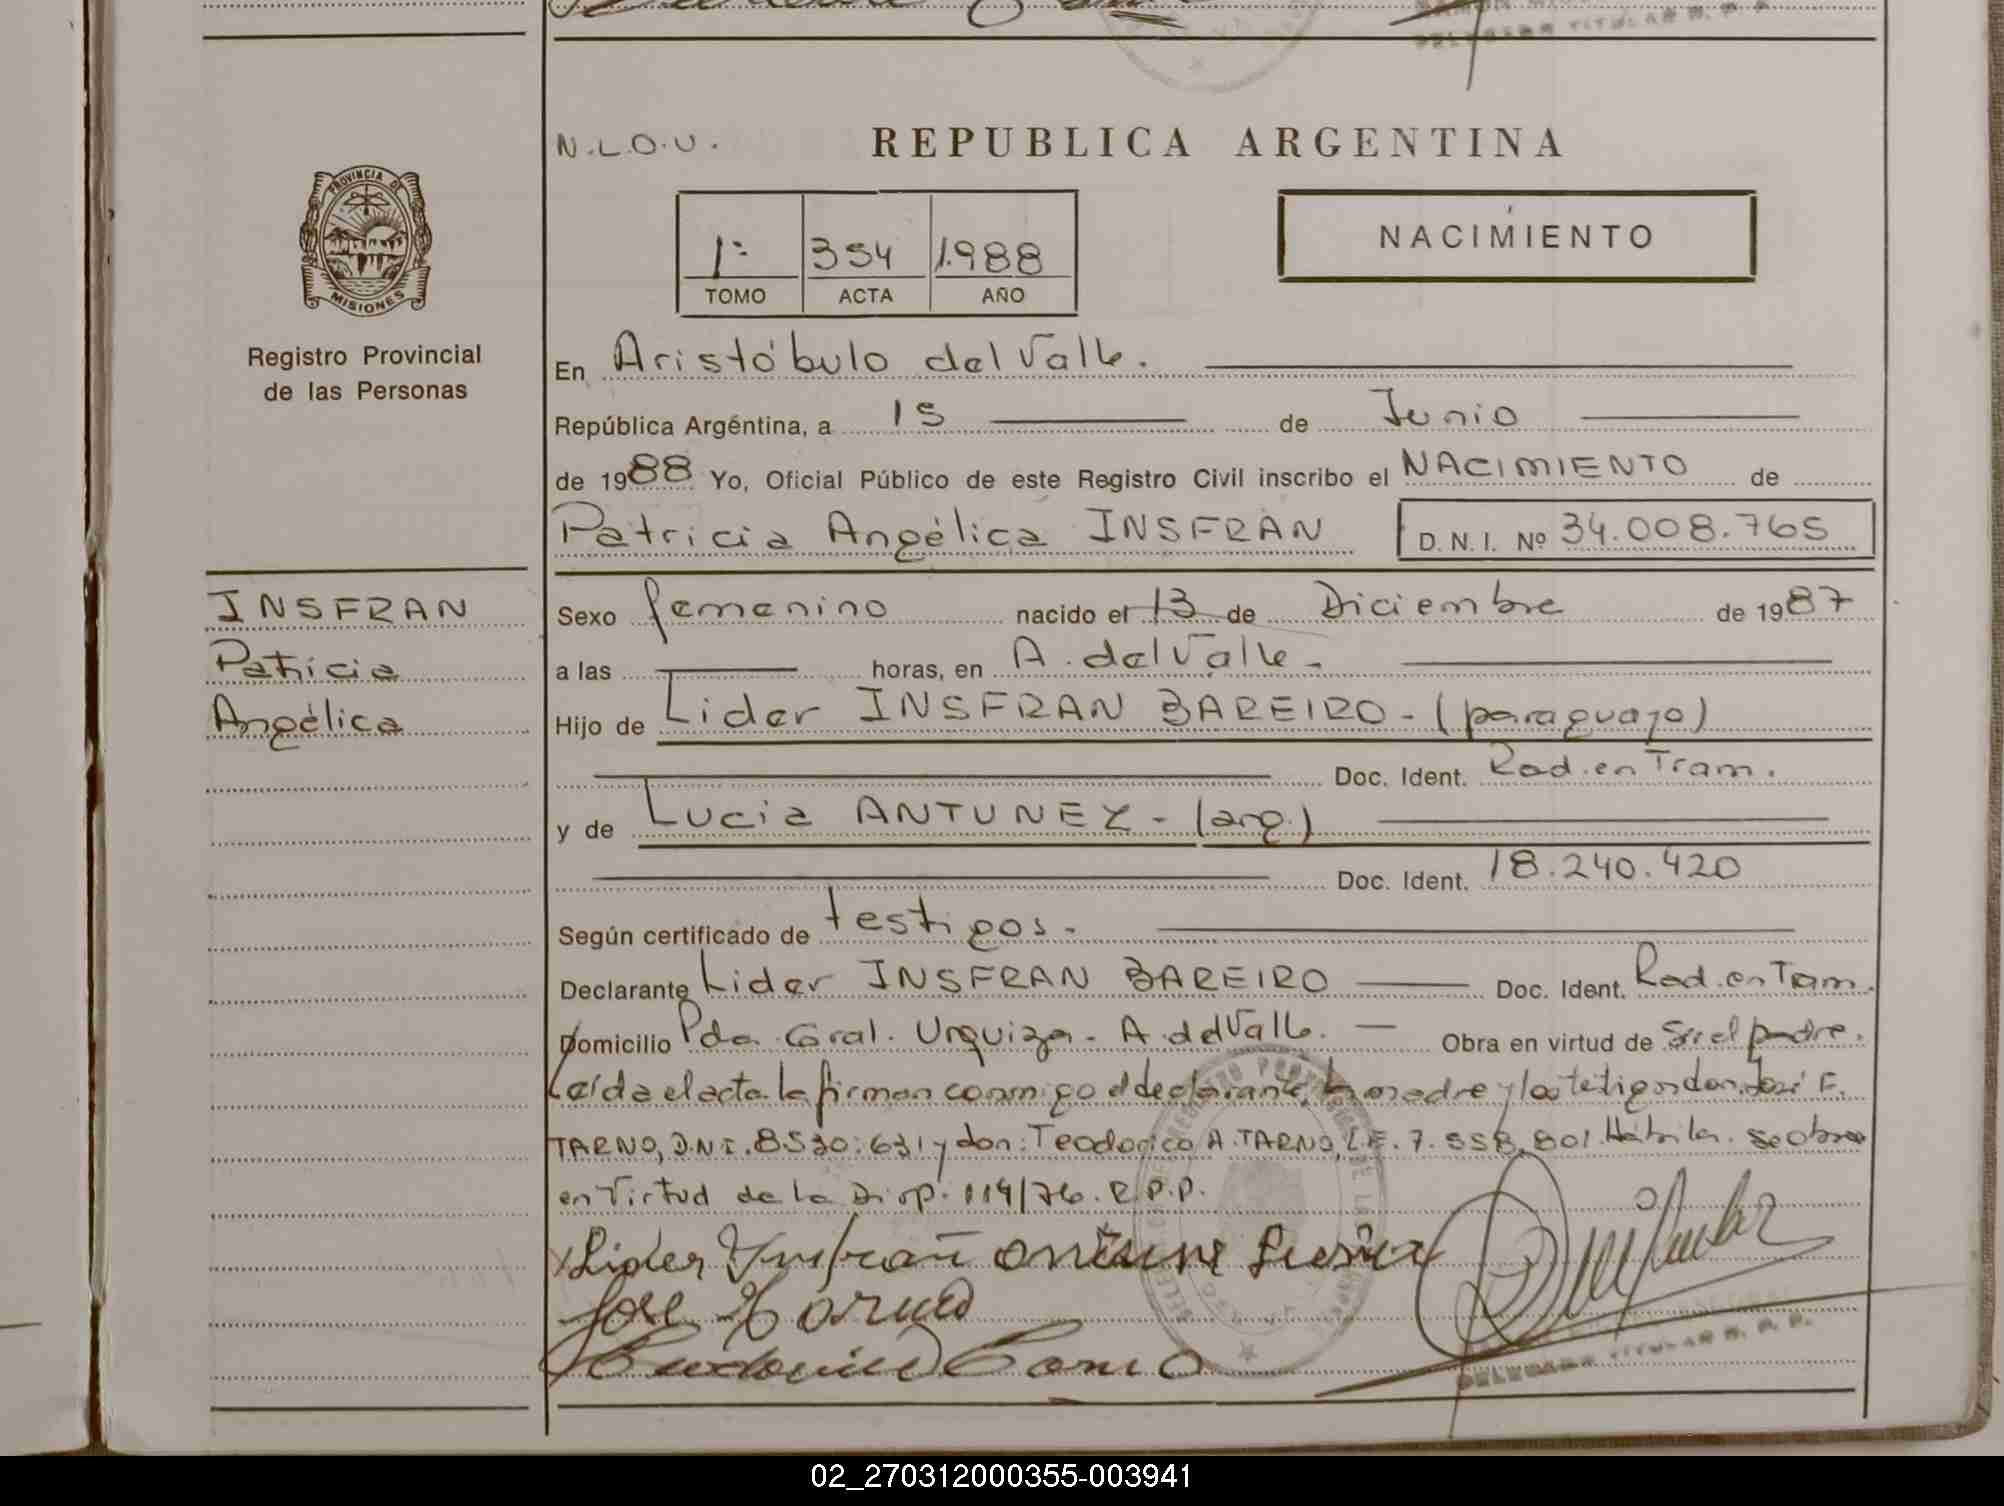 N.L.O.U.
REPUBLICA ARGENTINA
PROVINCIA DE
MISIONES
Registro Provincial
de las Personas
1º 354 1.988
TOMO ACTA AÑO
NACIMIENTO
En Aristóbulo del Valle.
República Argentina, a 15 de Junio
de 1988 Yo, Oficial Público de este Registro Civil inscribo el NACIMIENTO de
Patricia Angélica INSFRAN D. N. I. Nº 34.008.765
INSFRAN
Patricia
Angélica
Sexo femenino nacido el 13 de Diciembre de 1987
a las horas, en A. del Valle -
Hijo de Lider INSFRAN BAREIRO - (paraguayo)
Doc. Ident. Rad. en Tram.
y de Lucia ANTUNEZ - (arg.)
Doc. Ident. 18.240.420
Según certificado de testigos -
Declarante Lider INSFRAN BAREIRO Doc. Ident. Rad. en Tram.
Domicilio Pda. Gral. Urquiza - A. del Valle. Obra en virtud de Ser el padre.
Leída el acta la firman conmigo el declarante, la madre y los testigos don: José F.
TARNO, D.N.I. 8530.631 y don: Teodorico A. TARNO, L.E. 7.558.801. se obra
en Virtud de la Disp. 114/76. R.P.P.
Lider Insfrañ
Jose Tarno
DELEGADO TITULAR R. P. P.
02_270312000355-003941